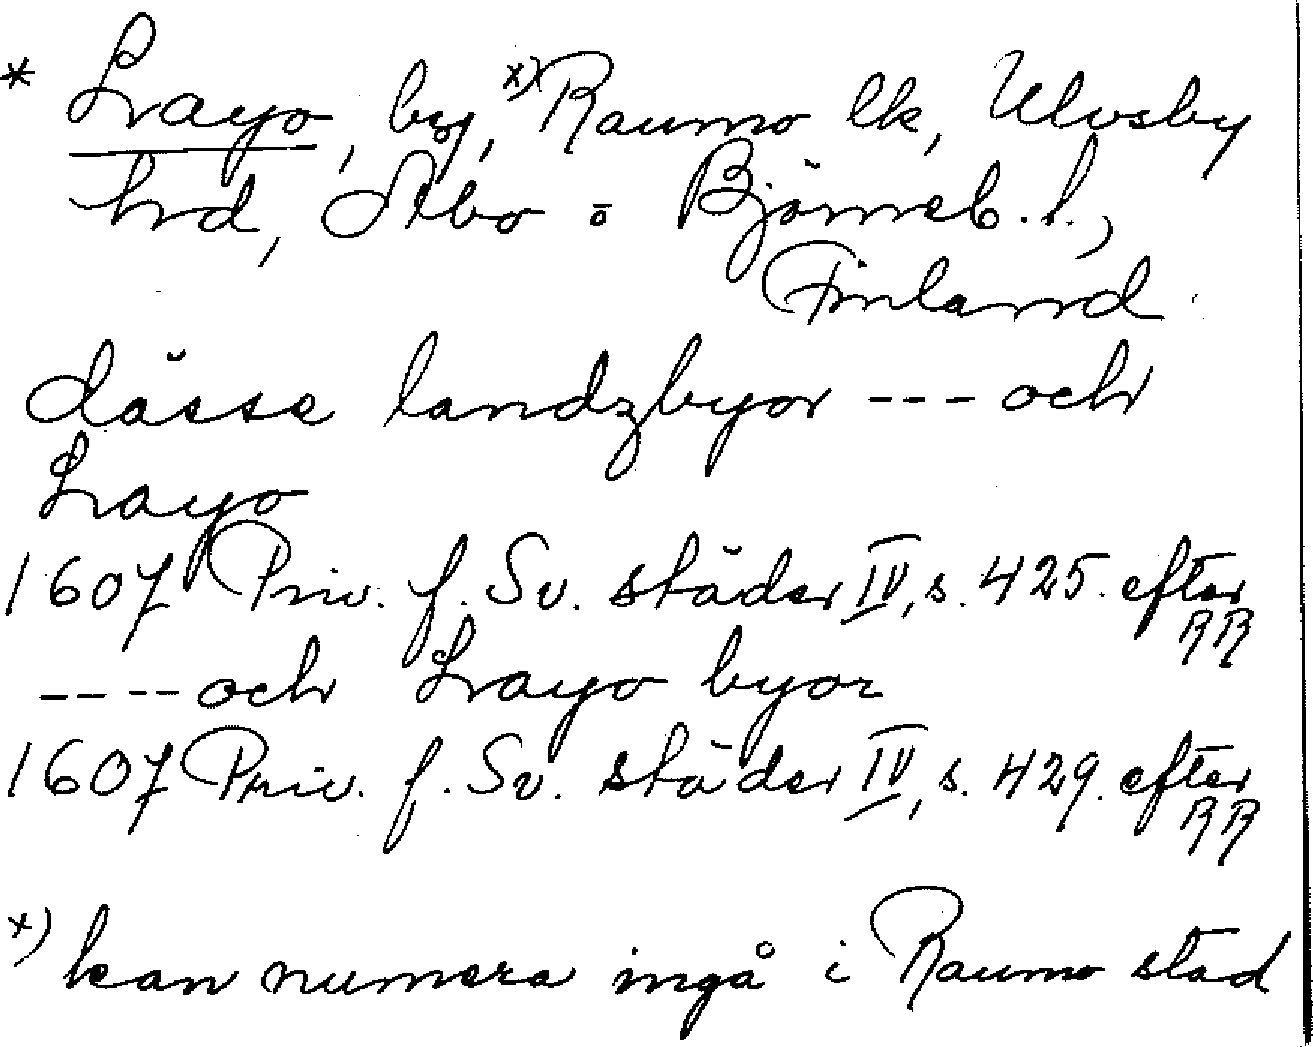 * Layo, by, x) Raumo lk, Ulvsby
hrd, Åbo o Björneb. l.,
Finland
dässe landzbyor --- och
Layo
1607 Priv. f. Sv. städer IV, s. 425. efter
RR
---- och Layo byor
1607 Priv. f. Sv. städer IV, s. 429. efter
RR
x) kan numera ingå i Raumo stad